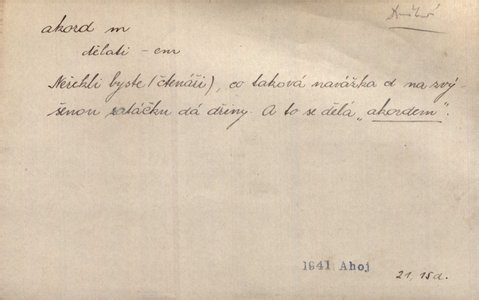 akord m
dělati -em
Neřekli byste (čtenáři), co taková navážka d na zvý-
šenou zatáčku dá dřiny. A to se dělá „akordem".
1941 Ahoj
21, 15d.